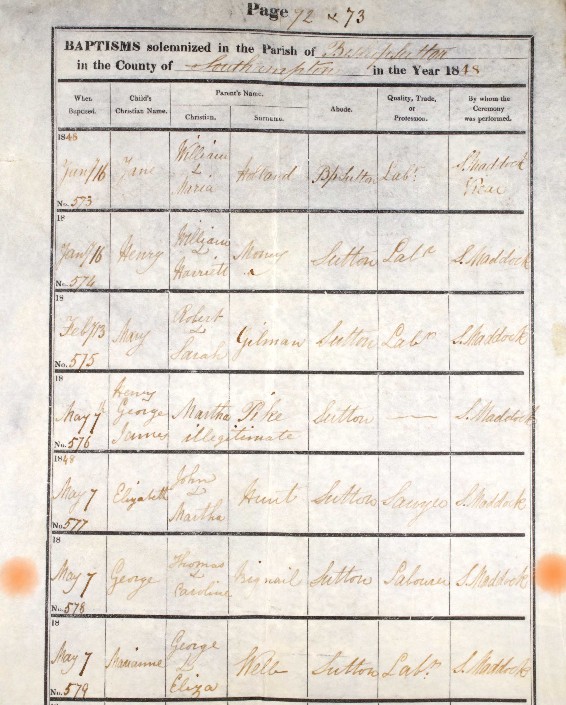 Page 72 & 73
BAPTISMS solemnized in the Parish of Bishop Sutton
in the County of Southampton in the Year 1848
When Baptized. Child's Christian Name. Parent's Name. Christian. Surname. Abode. Quality, Trade, or Profession. By whom the Ceremony was performed.
1848
Jany 16 Jane William & Maria Holland BpSutton Labr S. Maddock Vicar
No. 573
18
Jany 16 Henry William & Harriett Sutton Labr S. Maddock
No. 574
18
Feby 13 Mary Robert & Sarah Gilman Sutton Labr S. Maddock
No. 575
18
May 7 Henry George James Martha Pike illegitimate Sutton — S. Maddock
No. 576
1848
May 7 Elizabeth John & Martha Hunt Sutton Sawyer S. Maddock
No. 577
18
May 7 George Thomas & Caroline Bignail Sutton Labourer S. Maddock
No. 578
18
May 7 Marianne George & Eliza Sutton Labr S. Maddock
No. 579